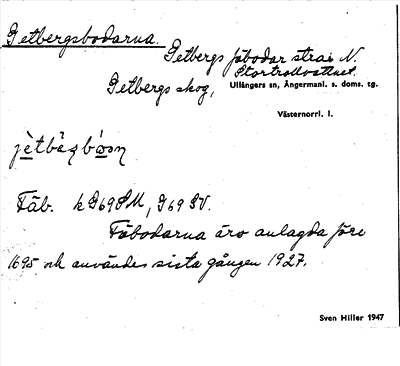 Getbergsbodarna.
Getbergs fäbodar strax N.
Stortrollvattnet.
Getbergs skog, Ullångers sn, Ångermanl. s. doms. tg.
Västernorrl. l.
Fäb. k G69SM, G69 SV.
Fäbodarna äro anlagda före
1695 och användes sista gången 1927.
Sven Hiller 1947